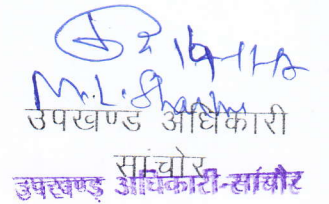 M.L. Sharma
उपखण्ड अधिकारी
सांचोर
उपखण्ड अधिकारी-सांचौर